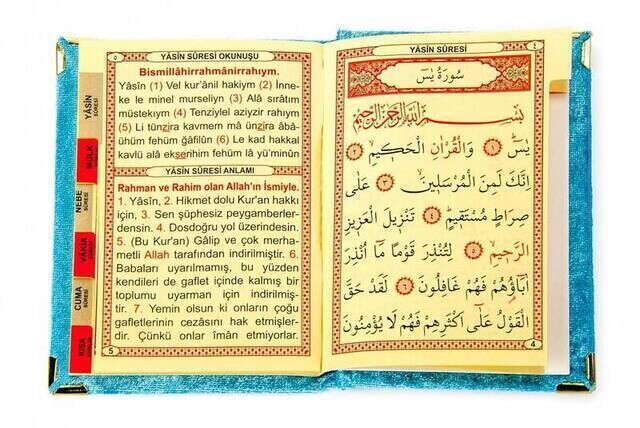 ٤
YÂSİN SÛRESİ
سُورَةُ يٰسٓ
بِسْمِ اللّٰهِ الرَّحْمٰنِ الرَّحِيمِ
يٰسٓ ﴿١﴾ وَالْقُرْاٰنِ الْحَكِيمِ ﴿٢﴾
اِنَّكَ لَمِنَ الْمُرْسَلِينَ ﴿٣﴾ عَلٰى
صِرَاطٍ مُسْتَقِيمٍ ﴿٤﴾ تَنْزِيلَ الْعَزِيزِ
الرَّحِيمِ ﴿٥﴾ لِتُنْذِرَ قَوْمًا مَٓا اُنْذِرَ
اٰبَٓاؤُ۬هُمْ فَهُمْ غَافِلُونَ ﴿٦﴾ لَقَدْ حَقَّ
الْقَوْلُ عَلٰٓى اَكْثَرِهِمْ فَهُمْ لَا يُؤْمِنُونَ
4
٥
YÂSİN SÛRESİ OKUNUŞU
Bismillâhirrahmânirrahıym.
Yâsîn (1) Vel kur'ânil hakiym (2) İnne-
ke le minel murseliyn (3) Alâ sırâtım
müstekıym (4) Tenziylel aziyzir rahıym
(5) Li tünzira kavmem mâ ünzira âbâ-
ühüm fehüm ğâfilûn (6) Le kad hakkal
kavlü alâ ekserihim fehüm lâ yü'minûn
YÂSİN SÛRESİ ANLAMI
Rahman ve Rahim olan Allah'ın İsmiyle.
1. Yâsîn, 2. Hikmet dolu Kur'an hakkı
için, 3. Sen şüphesiz peygamberler-
densin. 4. Dosdoğru yol üzerindesin.
5. (Bu Kur'an) Gâlip ve çok merha-
metli Allah tarafından indirilmiştir. 6.
Babaları uyarılmamış, bu yüzden
kendileri de gaflet içinde kalmış bir
toplumu uyarman için indirilmiş-
tir. 7. Yemin olsun ki onların çoğu
gafletlerinin cezasını hak etmişler-
dir. Çünkü onlar îmân etmiyorlar.
5
YÂSİN
SÛRESİ
MÜLK
NEBE
SÛRESİ
VAKIA
SÛRESİ
CUMA
SÛRESİ
KISA